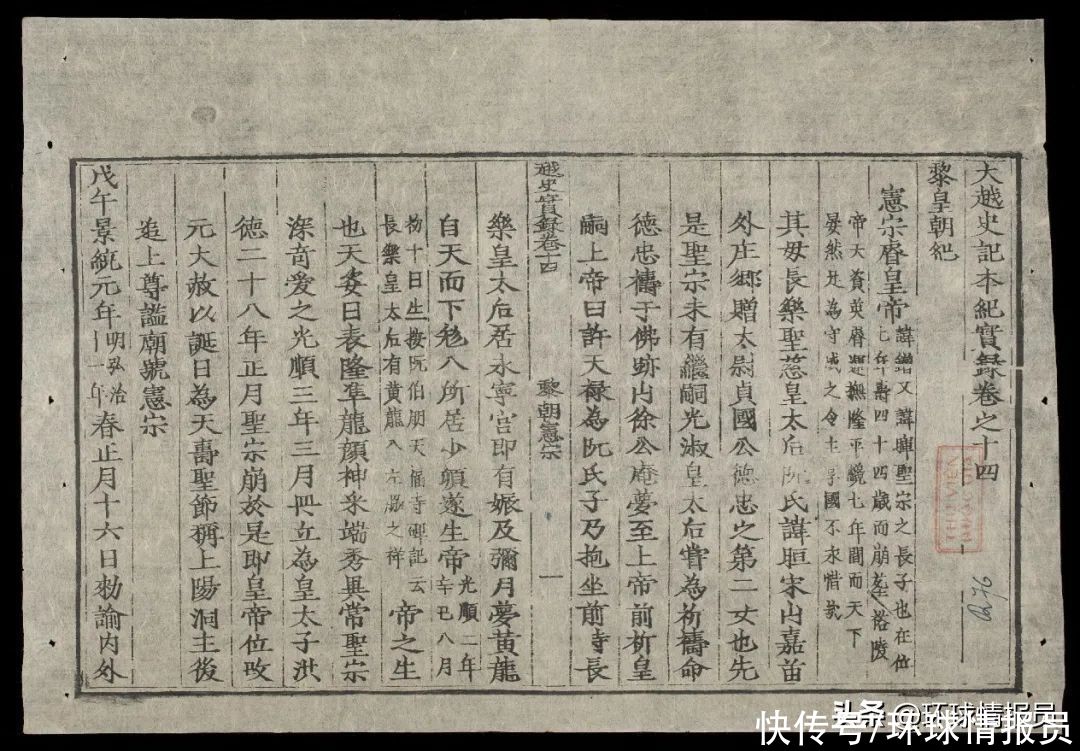 大越史記本紀實錄卷之十四
黎皇朝紀
憲宗睿皇帝
諱鏳又諱暉聖宗之長子也在位
七年壽四十四歲而崩葬裕陵
帝天資英睿運撫隆平纔七年間而天下
晏然足為守成之令主享國不永惜哉
其母長樂聖慈皇太后阮氏諱晅宋山嘉苗
外庄鄉贈太尉貞國公德忠之第二女也先
是聖宗未有繼嗣光淑皇太后嘗為祈禱命
德忠禱于佛跡山徐公庵夢至上帝前祈皇
嗣上帝曰許天祿為阮氏子乃抱坐前寺長
越史實錄卷十四
黎朝憲宗
一
樂皇太后居永寧宮即有娠及彌月夢黃龍
自天而下䄂入所居少頃遂生帝
光順二年
辛巳八月
初十日生按阮伯朋天福寺碑記云
長樂皇太后有黃龍入左腋之祥
帝之生
也天姿日表隆準龍顏神采端秀異常聖宗
深奇愛之光順三年三月冊立為皇太子洪
德二十八年正月聖宗崩於是即皇帝位改
元大赦以誕日為天壽聖節稱上陽洞主後
追上尊謚廟號憲宗
戊午景統元年
明弘治
十一年
春正月十六日勑諭内外
A.4/6
头条 @环球情报员
快传号/环球情报员